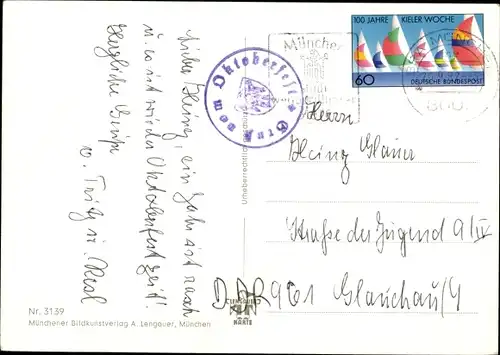 Lieber Heinz, ein Jahr ist rasch
u. es ist wieder Oktoberfestzeit!
Herzliche Grüße
v. Fritz u. Resl
Nr. 3139
Münchener Bildkunstverlag A. Lengauer, München
Gruß vom Oktoberfest
Münchner
100 JAHRE KIELER WOCHE
60 DEUTSCHE BUNDESPOST
Herrn
Heinz Glauer
Straße der Jugend 9/IV
DDR 961 Glauchau/4